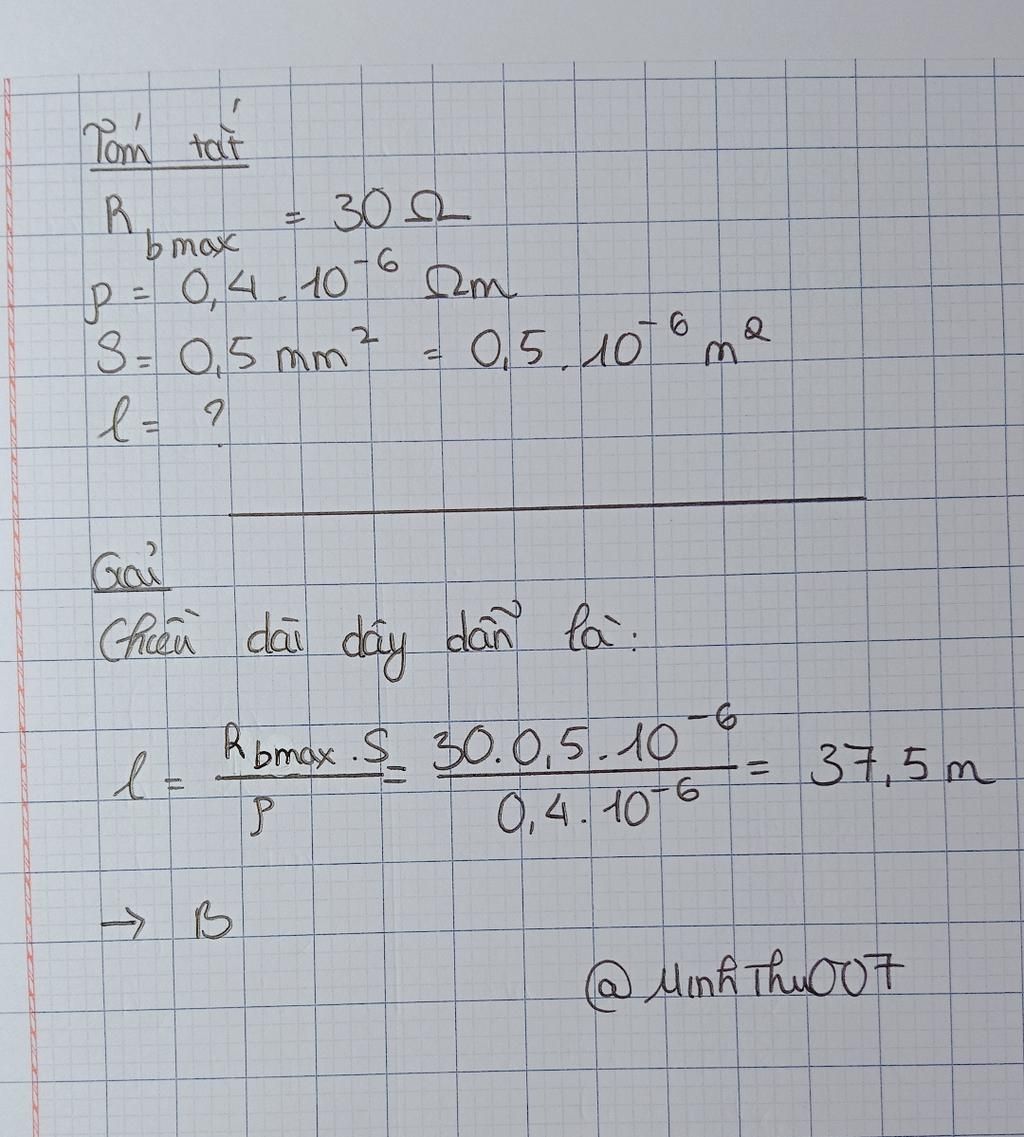 Tóm tắt
R bmax = 30 Ω
ρ = 0,4 . 10⁻⁶ Ωm
S = 0,5 mm² = 0,5 . 10⁻⁶ m²
l = ?
Giải
Chiều dài dây dẫn là:
l = R bmax . S / ρ = 30 . 0,5 . 10⁻⁶ / 0,4 . 10⁻⁶ = 37,5 m
→ B
@MinhThu007